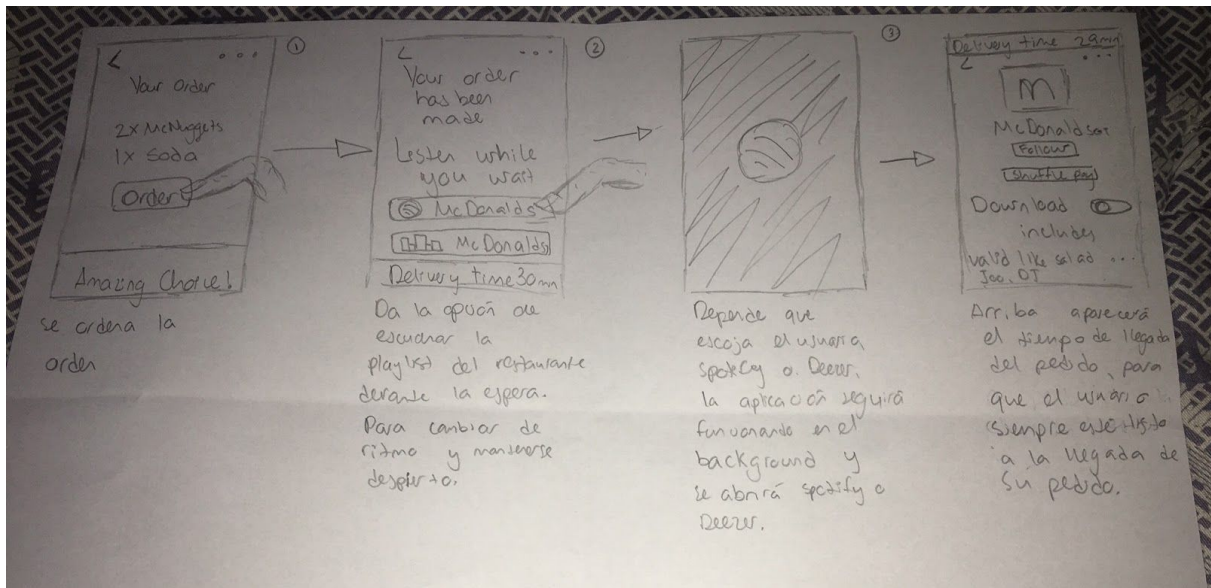 ①
Your Order
2x McNuggets
1x Soda
Order
Amazing Choice!
se ordena la
orden
②
Your order
has been
made
Listen while
you wait
McDonalds
McDonalds
Delivery time 30 min
Da la opción de
escuchar la
playlist del restaurante
durante la espera.
Para cambiar de
ritmo y mantenerse
despierto.
③
Depende que
escoja el usuario
Spotify o Deezer.
la aplicación seguirá
funcionando en el
background y
se abrirá spotify o
Deezer.
Delivery time 29 min
m
McDonalds
Follow
Shuffle play
Download
includes
valid like salad ...
Joo, DJ
Arriba aparecerá
el tiempo de llegada
del pedido, para
que el usuario
siempre esté listo
a la llegada de
su pedido.